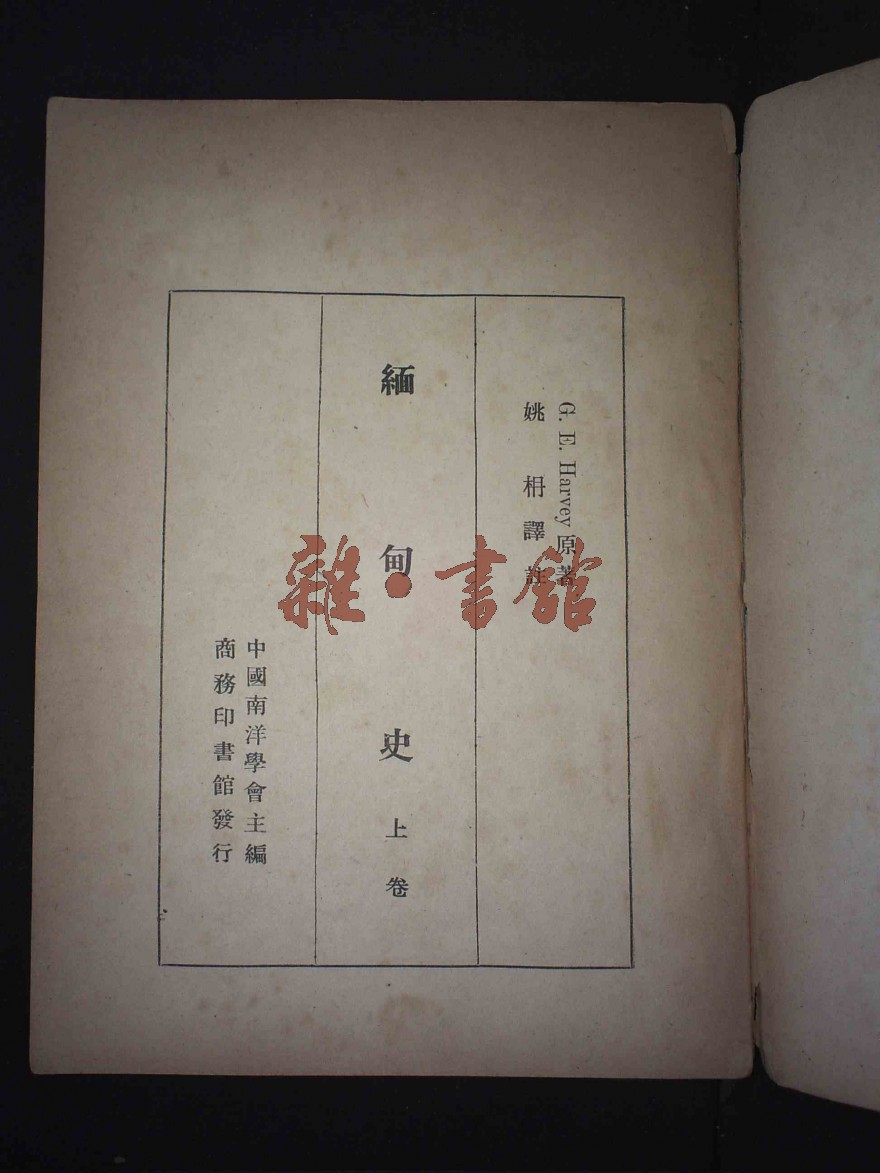 G. E. Harvey 原著
姚枬譯註
緬甸史 上卷
中國南洋學會主編
商務印書館發行
雜·書館